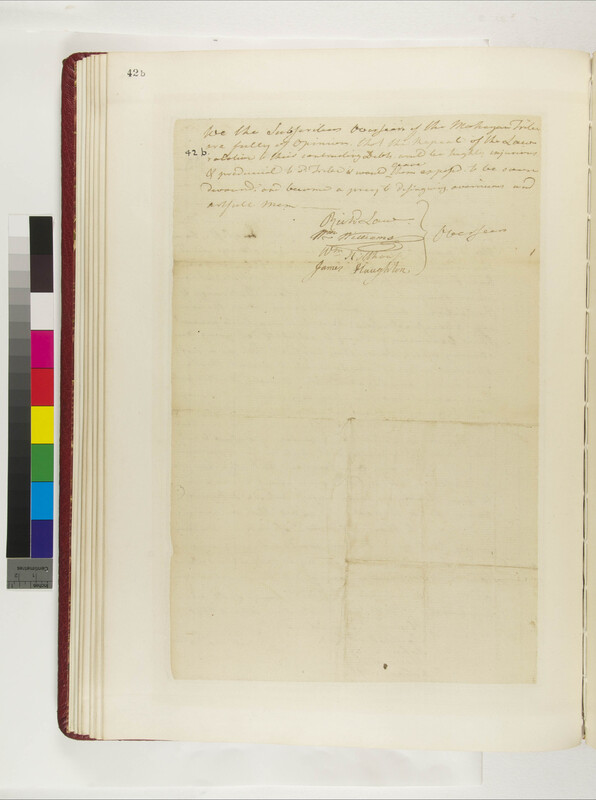 42b
We the Subscribers Overseers of the Mohegan Tribe
are fully of Opinion that the Repeal of the Law
42 b.
relation to their contracting Debts, would be highly injurious
& prejudicial to sd Tribe & would leave them exposed to be
devoured, and become a prey to designing avaricious and
artfull Men
Richd Law
Wm Williams
Overseers
Wm
James Haughton